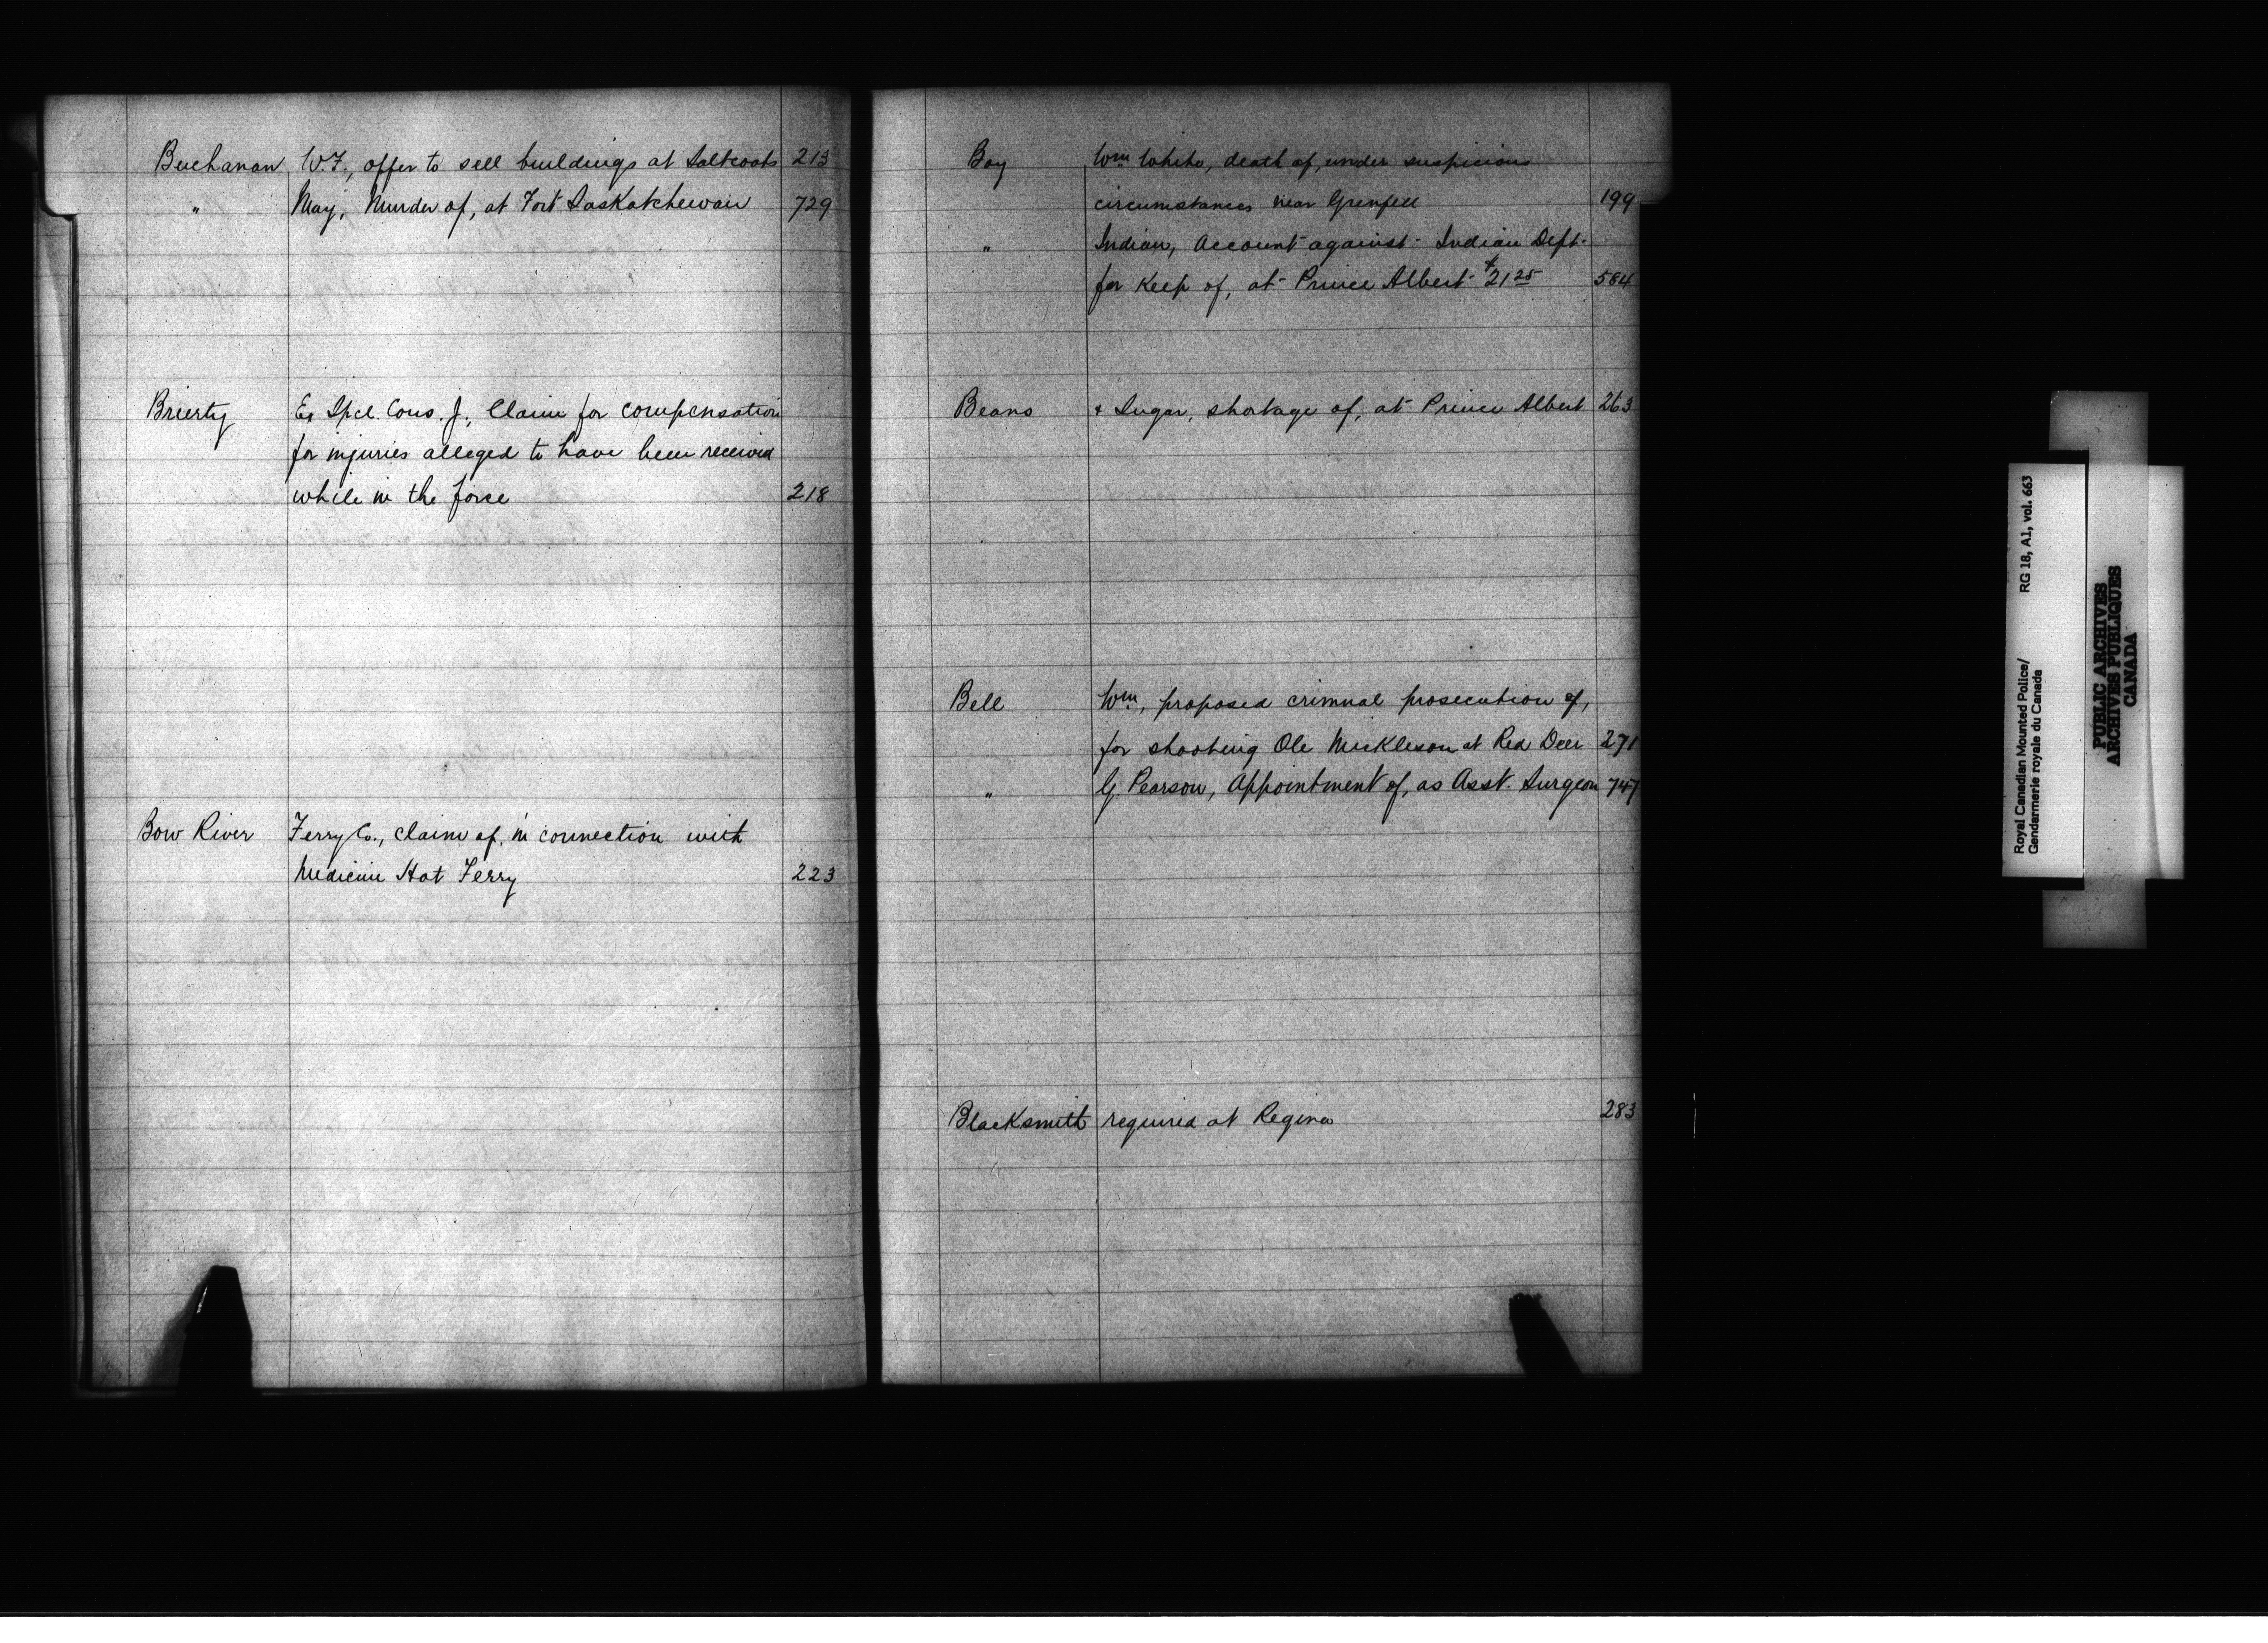 Buchanan W.F., offer to sell buildings at Saltcoats 213
" May, Murder of, at Fort Saskatchewan 729
Brierty Ex Spcl. Cons. J., Claim for compensation
for injuries alleged to have been received
while in the force 218
Bow River Ferry Co., claim of, in connection with
Medicine Hat Ferry 223
Boy Wm White, death of, under suspicious
circumstances near Grenfell 199
" Indian, Account against Indian Dept.
for Keep of, at Prince Albert $21 25 584
Beans & Sugar, shortage of, at Prince Albert 263
Bell Wm, proposed crimnal prosecution of,
for shooting Ole Mickleson at Red Deer 271
" G. Pearson, Appointment of, as Asst. Surgeon 747
Blacksmith required at Regina 283
Royal Canadian Mounted Police/ RG 18, A1, vol. 663
Gendarmerie royale du Canada
PUBLIC ARCHIVES
ARCHIVES PUBLIQUES
CANADA